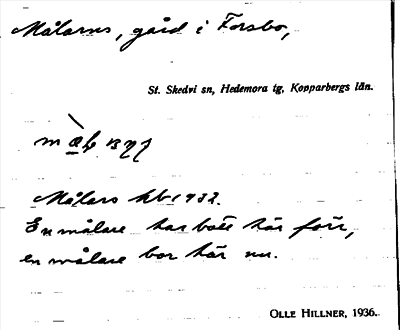 Målarns, gård i Forsbo,
St. Skedvi sn, Hedemora tg, Kopparbergs län.
Målars kb 1933.
En målare har bott här förr,
en målare bor här nu.
OLLE HILLNER, 1936.